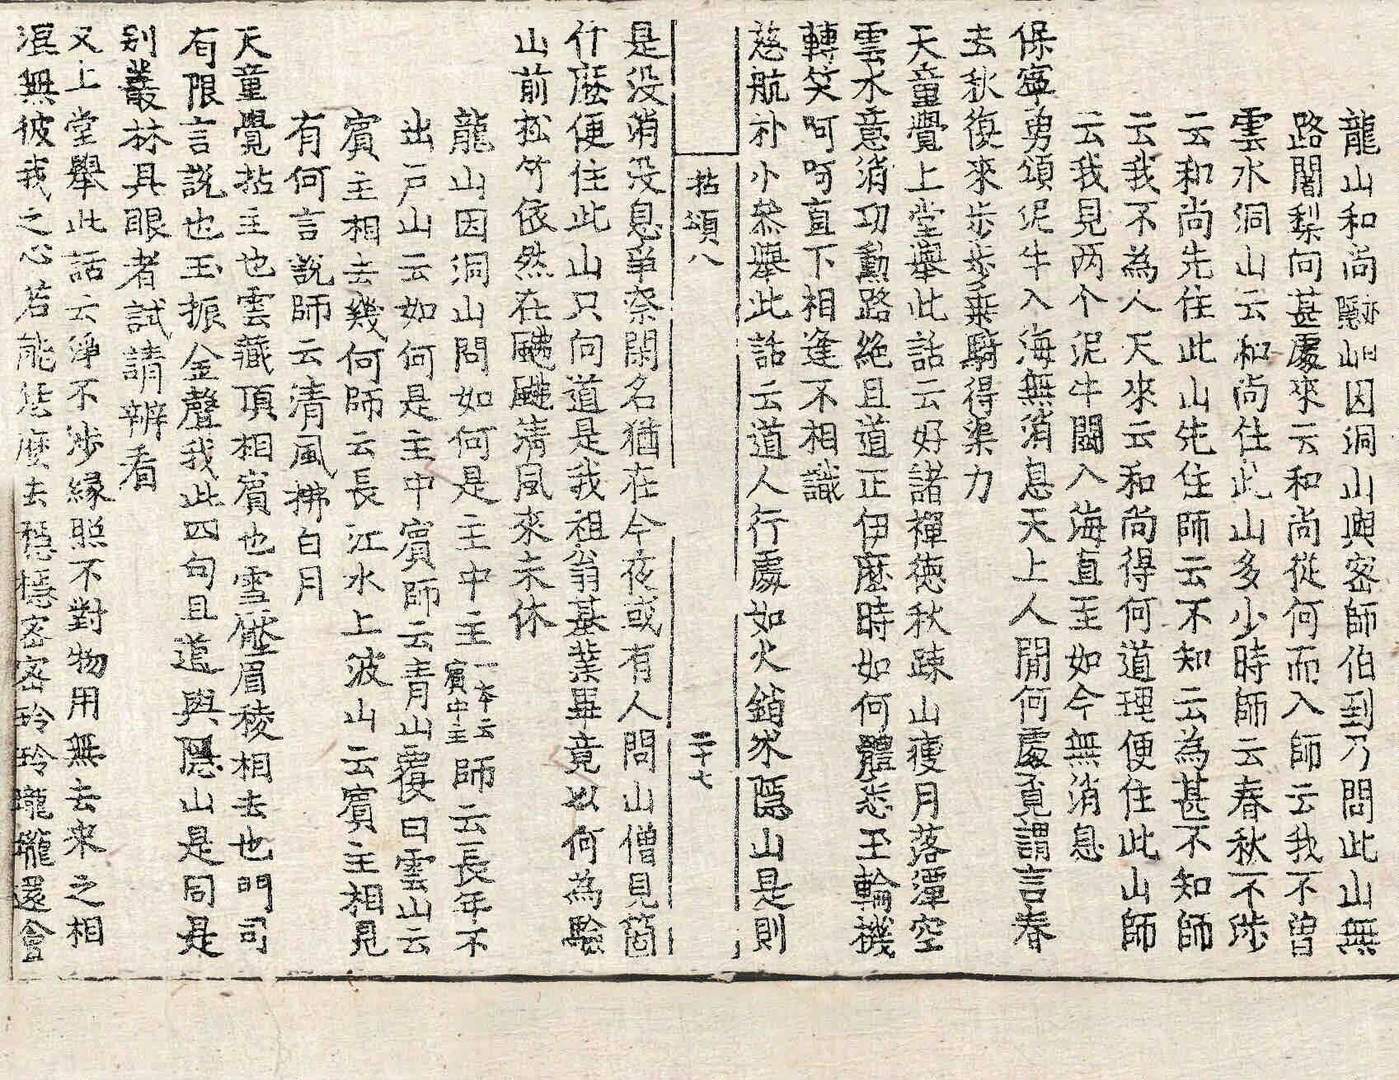 龍山和尚隱山因洞山與密師伯到乃問此山無
路闍梨向甚處來云和尚從何而入師云我不曾
雲水洞山云和尚住此山多少時師云春秋不涉
云和尚先住此山先住師云不知云為甚不知師
云我不為人天來云和尚得何道理便住此山師
云我見两个泥牛鬪入海直至如今無消息
保寧勇頌泥牛入海無消息天上人閒何處覓謂言春
去秋復來步步乗騎得渠力
天童覺上堂舉此話云好諸禪徳秋踈山瘦月落潭空
雲水意消功勳路絶且道正伊麽時如何體悉玉輪機
轉笑呵呵直下相逢不相識
慈航朴小叅舉此話云道人行處如火銷氷隱山是則
拈頌八
二十七
是没消没息爭奈閑名猶在今夜或有人問山僧見箇
什麽便住此山只向道是我祖翁基業畢竟以何為驗
山前松竹依然在颺颺淸風來未休
龍山因洞山問如何是主中主一本云賓中主師云長年不
出戸山云如何是主中賓師云青山覆白雲山云
賓主相去幾何師云長江水上波山云賓主相見
有何言說師云清風拂白月
天童覺拈主也雲藏頂相賓也雪壓眉稜相去也門司
有限言說也玉振金聲我此四句且道與隱山是同是
别叢林具眼者試請辨看
又上堂舉此話云淨不涉緣照不對物用無去來之相
混無彼我之心若能恁麽去穏穏密密玲玲瓏瓏還會